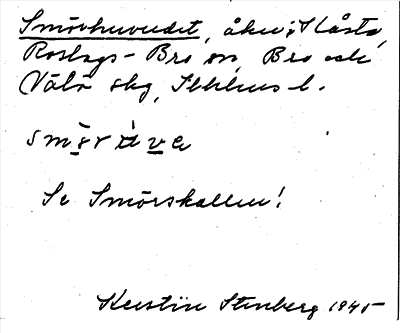 Smörhuvudet, åker, i Låsta,
Roslags-Bro sn, Bro och
Väla skg, Sthlms l.
smörùve
Se Smörskallen!
Kerstin Stenberg 1945